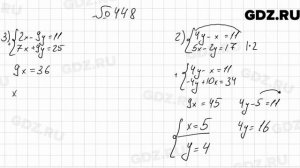 GDZ.RU
№ 448
3) { 2x - 9y = 11
7x + 9y = 25
9x = 36
x
2) { 4y - x = 11
5x - 2y = 17 | · 2
+ { 4y - x = 11
-4y + 10x = 34
9x = 45
4y - 5 = 11
4y = 16
{ x = 5
y = 4
GDZ.RU